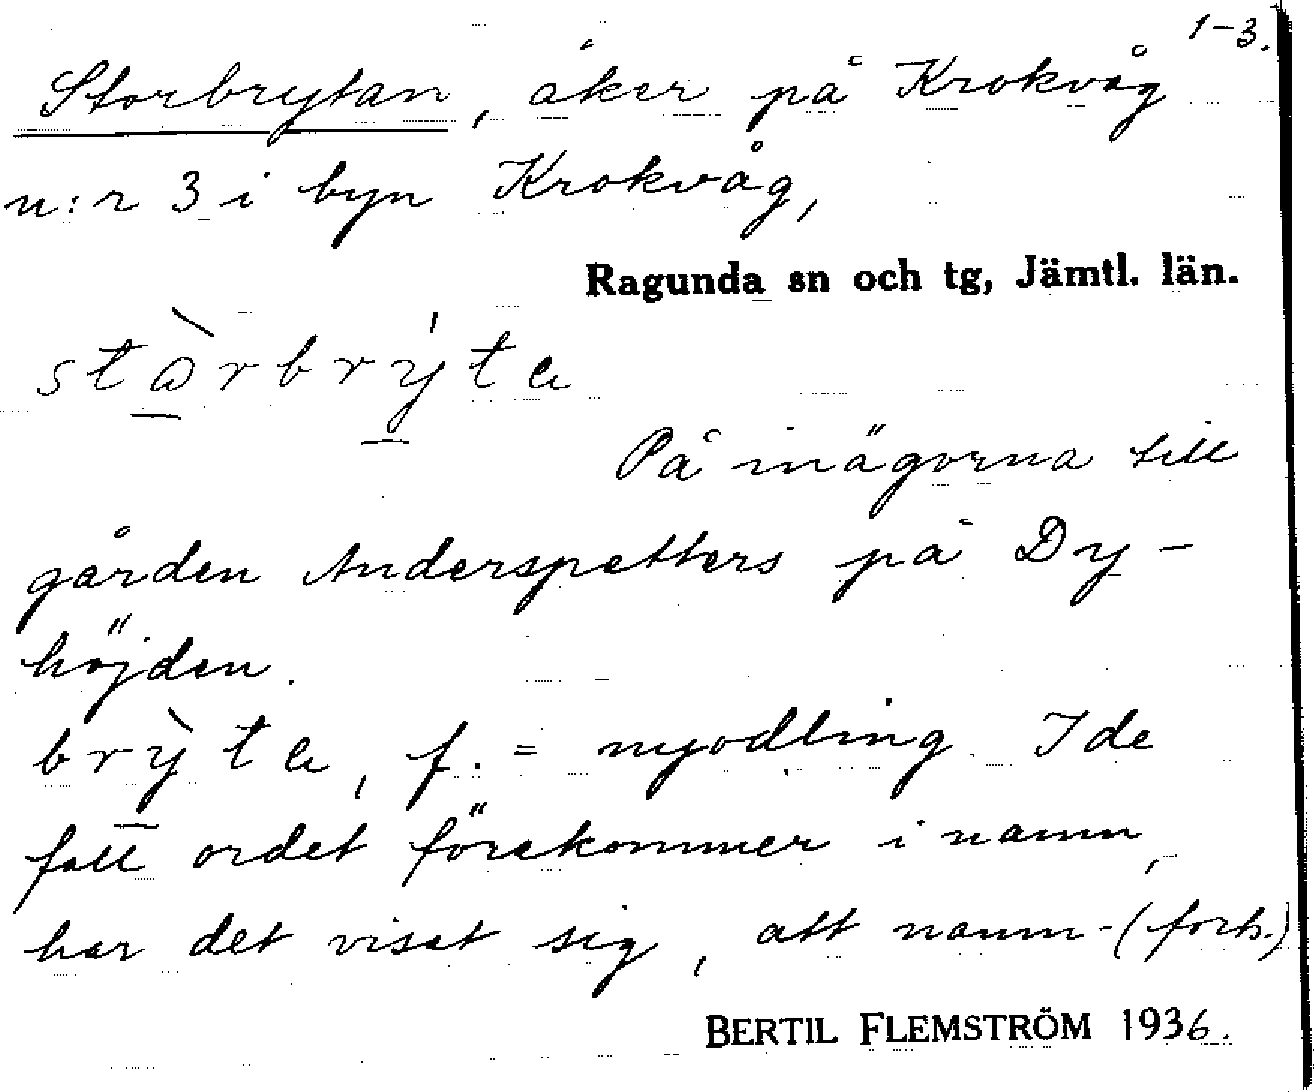 1-3.
Storbrytan, åker på Krokvåg
n:r 3 i byn Krokvåg,
Ragunda sn och tg, Jämtl. län.
stòrbrýta
På inägorna till
gården Anderspetters på Dy-
höjden.
brỳta, f. = nyodling. I de
fall ordet förekommer i namn,
har det visat sig, att namn-(forts.)
BERTIL FLEMSTRÖM 1936.